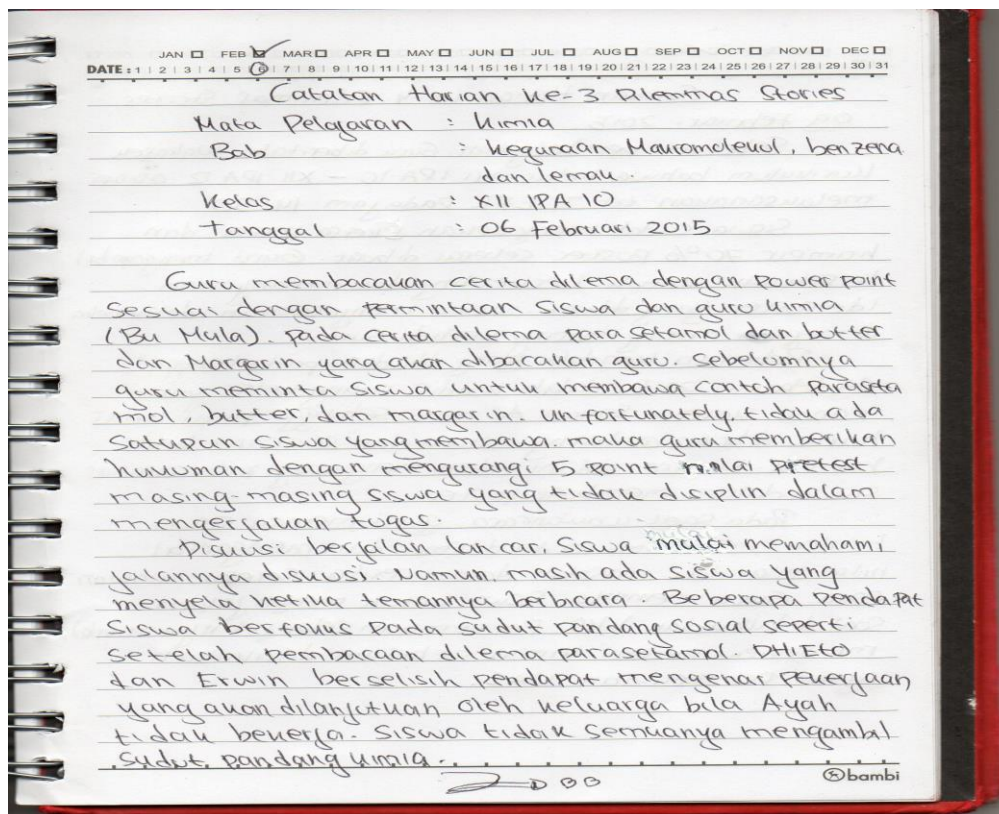 JAN FEB MAR APR MAY JUN JUL AUG SEP OCT NOV DEC
DATE : 1 2 3 4 5 6 7 8 9 10 11 12 13 14 15 16 17 18 19 20 21 22 23 24 25 26 27 28 29 30 31
Catatan Harian ke-3 Dilemmas Stories
Mata Pelajaran : Kimia
Bab : Kegunaan Makromolekul, benzena
dan lemak.
Kelas : XII IPA 10
Tanggal : 06 Februari 2015
Guru membacakan cerita dilema dengan Power point
sesuai dengan permintaan siswa dan guru kimia
(Bu Mula). Pada cerita dilema parasetamol dan butter
dan Margarin yang akan dibacakan guru. Sebelumnya
guru meminta siswa untuk membawa contoh paraseta
mol, butter, dan margarin. Unfortunately, tidak ada
satupun siswa yang membawa. maka guru memberikan
hukuman dengan mengurangi 5 point nilai pretest
masing-masing siswa yang tidak disiplin dalam
mengerjakan tugas.
Diskusi berjalan lancar, siswa mulai memahami
jalannya diskusi. Namun, masih ada siswa yang
menyela ketika temannya berbicara. Beberapa pendapat
siswa berfokus pada sudut pandang sosial seperti
setelah pembacaan dilema parasetamol. DHIETO
dan Erwin berselisih pendapat mengenai pekerjaan
yang akan dilanjutkan oleh keluarga bila Ayah
tidak bekerja. Siswa tidak semuanya mengambil
sudut pandang kimia.
bambi